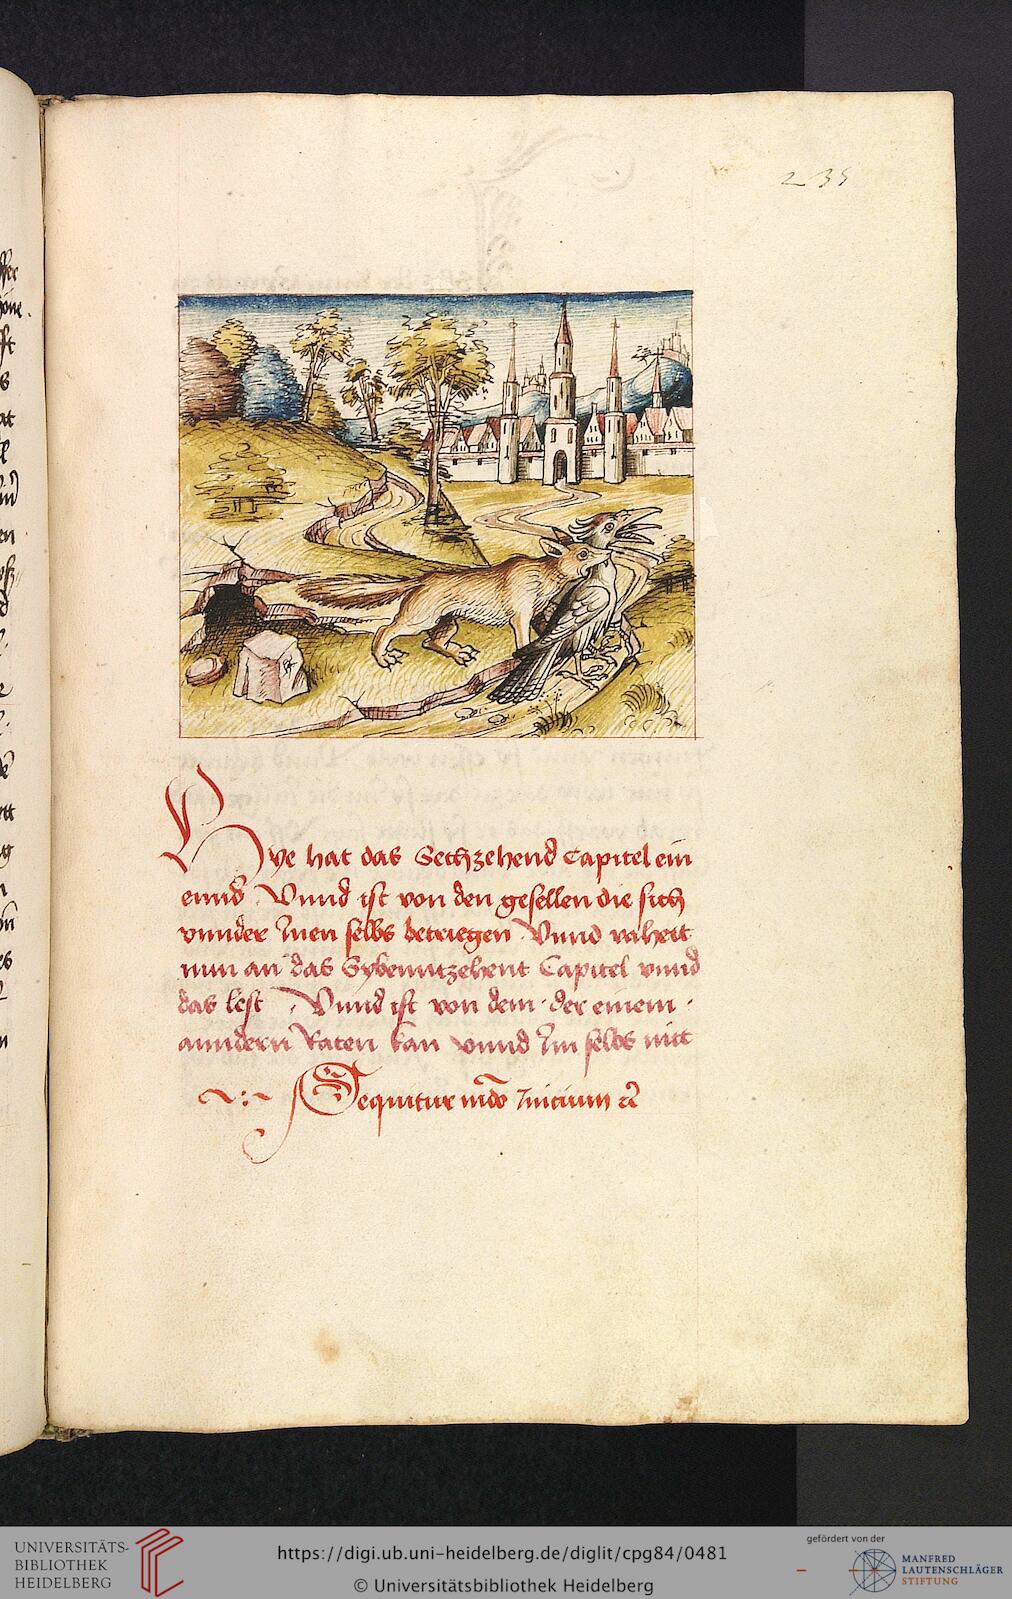 235
Hye hat das Sechzehend Capitel ein
ennd Vnnd ist von den gesellen die sich
vnnder Jnen selbs betriegen Vnnd vaheit
nun an das Sybenntzehent Capitel vnnd
das lest Vnnd ist von dem der einem
anndern Raten kan vnnd Jm selbs nitt
Sequitur Initium
UNIVERSITÄTS-
BIBLIOTHEK
HEIDELBERG
https://digi.ub.uni-heidelberg.de/diglit/cpg84/0481
© Universitätsbibliothek Heidelberg
gefördert von der
MANFRED
LAUTENSCHLÄGER
STIFTUNG